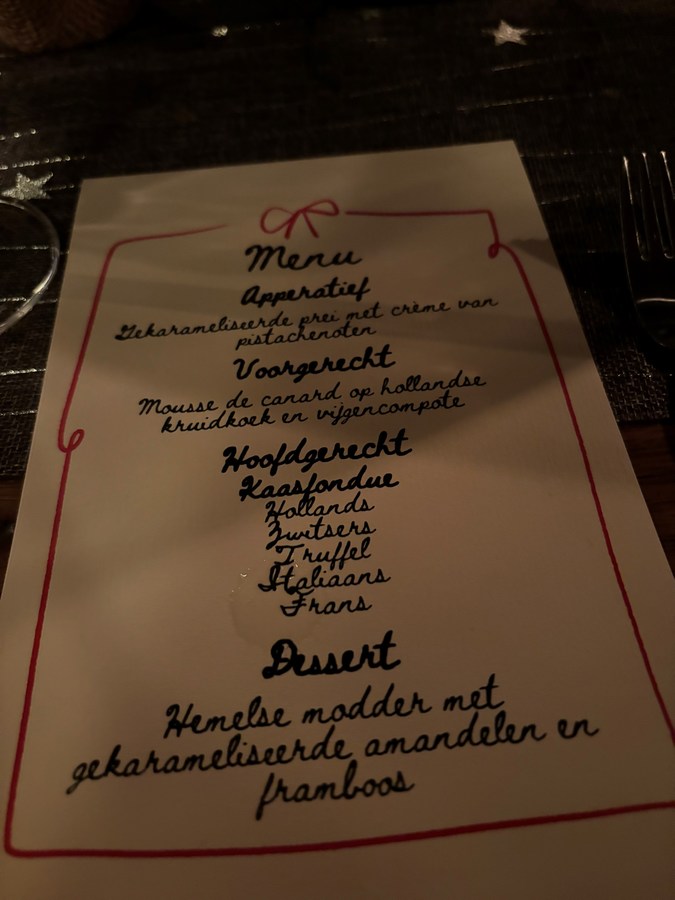 Menu
Apperatief
Gekarameliseerde prei met crème van
pistachenoten
Voorgerecht
Mousse de canard op hollandse
kruidkoek en vijgencompote
Hoofdgerecht
Kaasfondue
Hollands
Zwitsers
Truffel
Italiaans
Frans
Dessert
Hemelse modder met
gekarameliseerde amandelen en
framboos